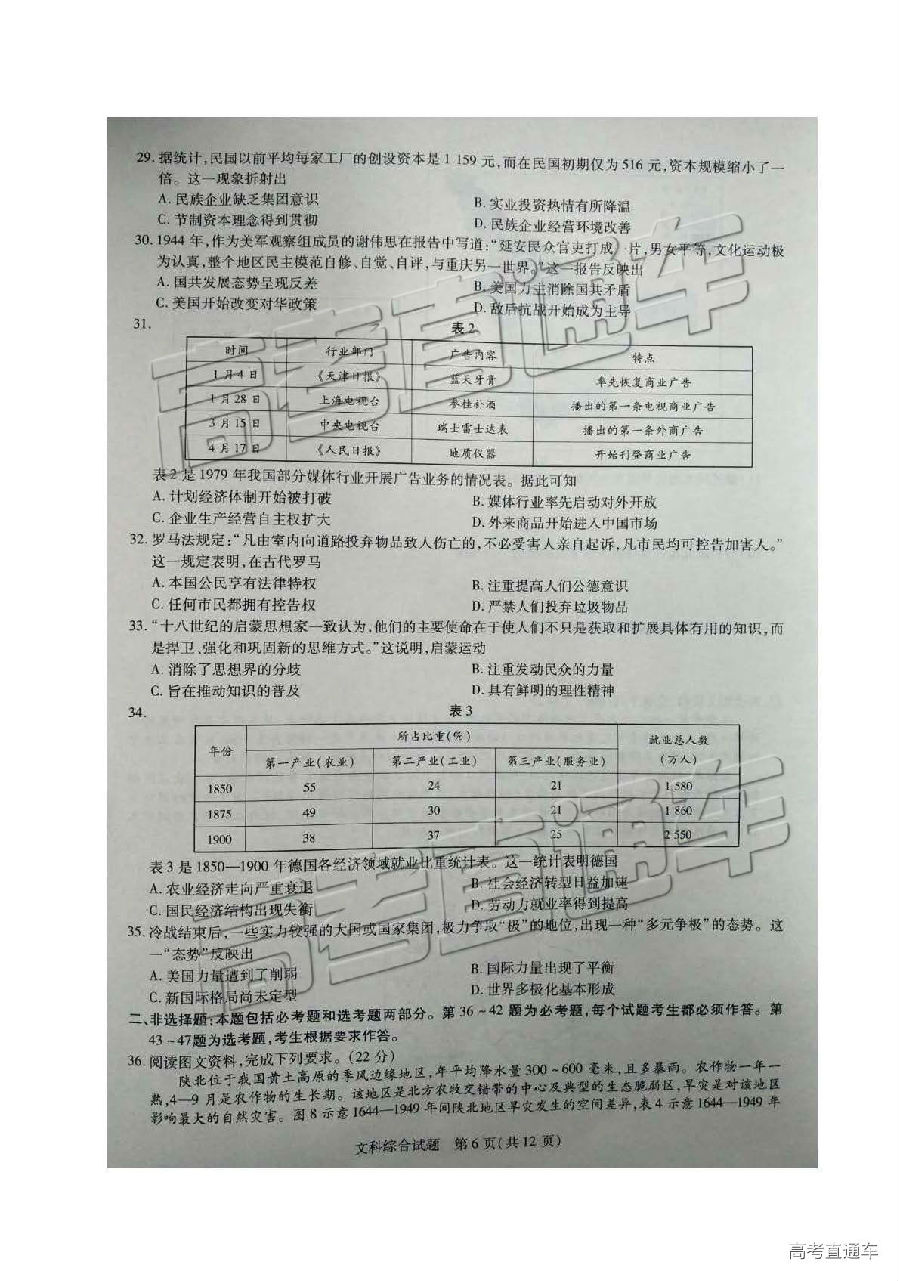 29. 据统计,民国以前平均每家工厂的创设资本是 1 159 元,而在民国初期仅为 516 元,资本规模缩小了一
倍。这一现象折射出
A. 民族企业缺乏集团意识 B. 实业投资热情有所降温
C. 节制资本理念得到贯彻 D. 民族企业经营环境改善
30. 1944 年,作为美军观察组成员的谢伟思在报告中写道:“延安民众官吏打成一片,男女平等,文化运动极
为认真,整个地区民主模范自修、自觉、自评,与重庆另一世界。”这一报告反映出
A. 国共发展态势呈现反差 B. 美国力主消除国共矛盾
C. 美国开始改变对华政策 D. 敌后抗战开始成为主导
31. 表 2
时间 行业部门 广告内容 特点
1 月 4 日 《天津日报》 蓝天牙膏 率先恢复商业广告
1 月 28 日 上海电视台 参桂补酒 播出的第一条电视商业广告
3 月 15 日 中央电视台 瑞士雷士达表 播出的第一条外商广告
4 月 17 日 《人民日报》 地质仪器 开始刊登商业广告
表 2 是 1979 年我国部分媒体行业开展广告业务的情况表。据此可知
A. 计划经济体制开始被打破 B. 媒体行业率先启动对外开放
C. 企业生产经营自主权扩大 D. 外来商品开始进入中国市场
32. 罗马法规定:“凡由室内向道路投弃物品致人伤亡的,不必受害人亲自起诉,凡市民均可控告加害人。”
这一规定表明,在古代罗马
A. 本国公民享有法律特权 B. 注重提高人们公德意识
C. 任何市民都拥有控告权 D. 严禁人们投弃垃圾物品
33. “十八世纪的启蒙思想家一致认为,他们的主要使命在于使人们不只是获取和扩展具体有用的知识,而
是捍卫、强化和巩固新的思维方式。”这说明,启蒙运动
A. 消除了思想界的分歧 B. 注重发动民众的力量
C. 旨在推动知识的普及 D. 具有鲜明的理性精神
34. 表 3
年份 所占比重(%) 就业总人数
(万人)
第一产业(农业) 第二产业(工业) 第三产业(服务业)
1850 55 24 21 1 580
1875 49 30 21 1 860
1900 38 37 25 2 550
表 3 是 1850—1900 年德国各经济领域就业比重统计表。这一统计表明德国
A. 农业经济走向严重衰退 B. 社会经济转型日益加速
C. 国民经济结构出现失衡 D. 劳动力就业率得到提高
35. 冷战结束后,一些实力较强的大国或国家集团,极力争取“极”的地位,出现一种“多元争极”的态势。这
一“态势”反映出
A. 美国力量遭到了削弱 B. 国际力量出现了平衡
C. 新国际格局尚未定型 D. 世界多极化基本形成
二、非选择题:本题包括必考题和选考题两部分。第 36~42 题为必考题,每个试题考生都必须作答。第
43~47题为选考题,考生根据要求作答。
36. 阅读图文资料,完成下列要求。(22 分)
陕北位于我国黄土高原的季风边缘地区,年平均降水量 300~600 毫米,且多暴雨。农作物一年一
熟,4—9 月是农作物的生长期。该地区是北方农牧交错带的中心及典型的生态脆弱区,旱灾是对该地区
影响最大的自然灾害。图 8 示意 1644—1949 年间陕北地区旱灾发生的空间差异,表 4 示意 1644—1949 年
文科综合试题 第 6 页(共 12 页)
高考直通车
高考直通车
高考直通车